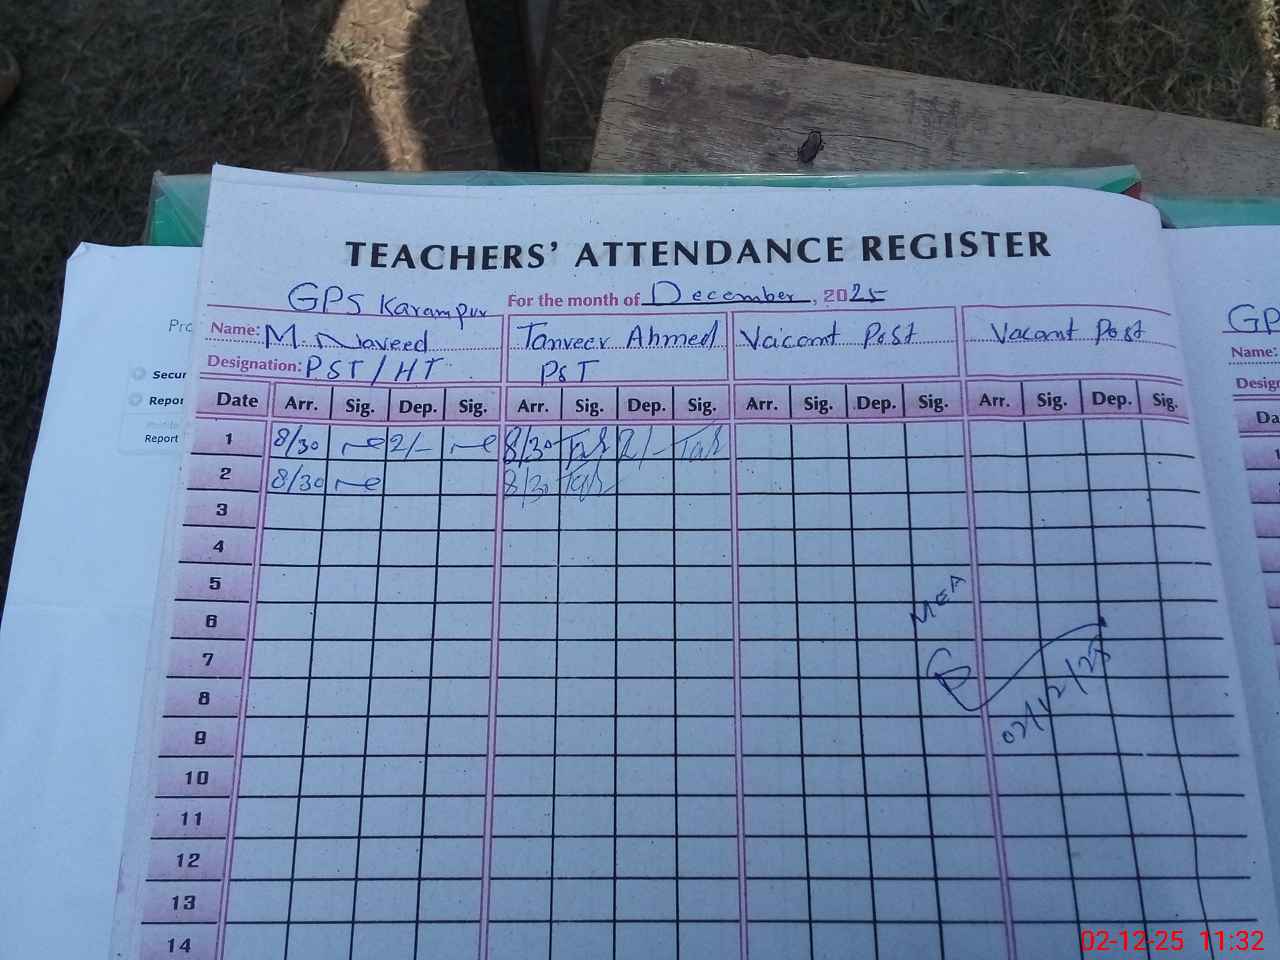 TEACHERS' ATTENDANCE REGISTER
GPS Karampur For the month of December, 2025
Name: M. Naveed Tanveer Ahmed Vacant Post Vacant Post
Designation: PST/HT PST
Date Arr. Sig. Dep. Sig. Arr. Sig. Dep. Sig. Arr. Sig. Dep. Sig. Arr. Sig. Dep. Sig.
1 8/30 2/- 8/30 2/-
2 8/30 8/30
3
4
5
6
7
8
9
10
11
12
13
14
MEA
02/12/25
GP
Name:
Desig
Da
Secur
Repor
Report
02-12-25 11:32